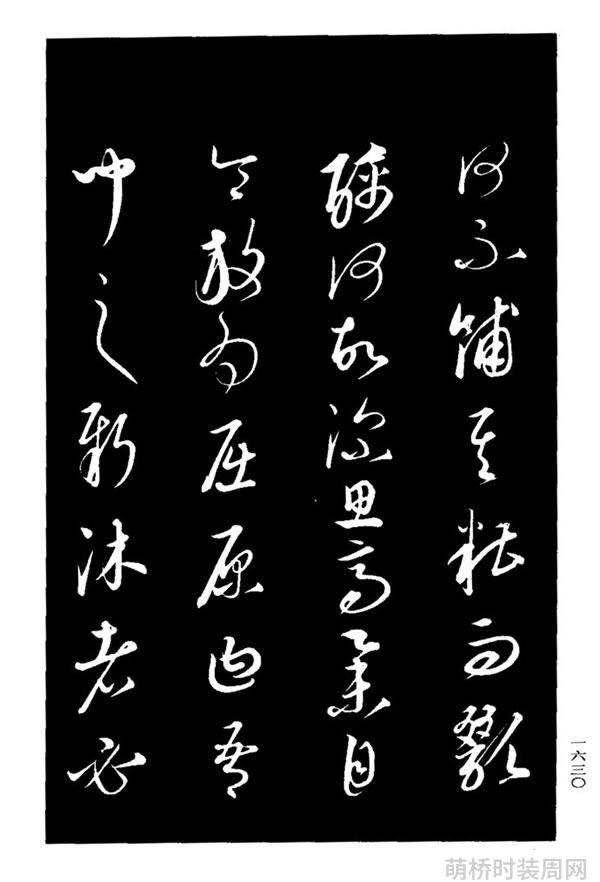 何不餔其糟而歠
醨何故深思高舉自
令放為屈原曰吾
聞之新沐者必
一六三〇
萌桥时装周网